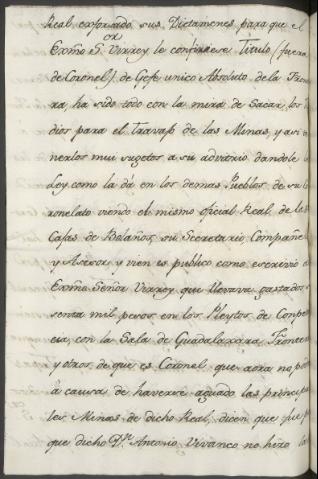 Real esforzado sus Dictamenes para que el
Exmo S.or Virrey le confiriese Titulo (fuera
de Coronel) de Gefe unico Absoluto de la Fron
ra, ha sido todo con la mira de Sacar los
dios para el Travajo de las Minas, y asi
nerlos mui sugetos a su advitrio dandole
Ley como la dá en los demas Pueblos de su
ronelato siendo el mismo oficial Real de las
Casas de Bolaños, su Secretario Compañe
y Asesor y vien es publico como escrivio a
Exmo Señor Virrey que llevava gastados
senta mil pesos en los Pleytos de Conpe
cia, con la Sala de Guadalaxara, Fronte
y otros, de que es Coronel, que aora no pod
à causa de haverse aguado las principa
les Minas de dicho Real, dicen que
que dicho Dn Antonio Vivanco no hizo la